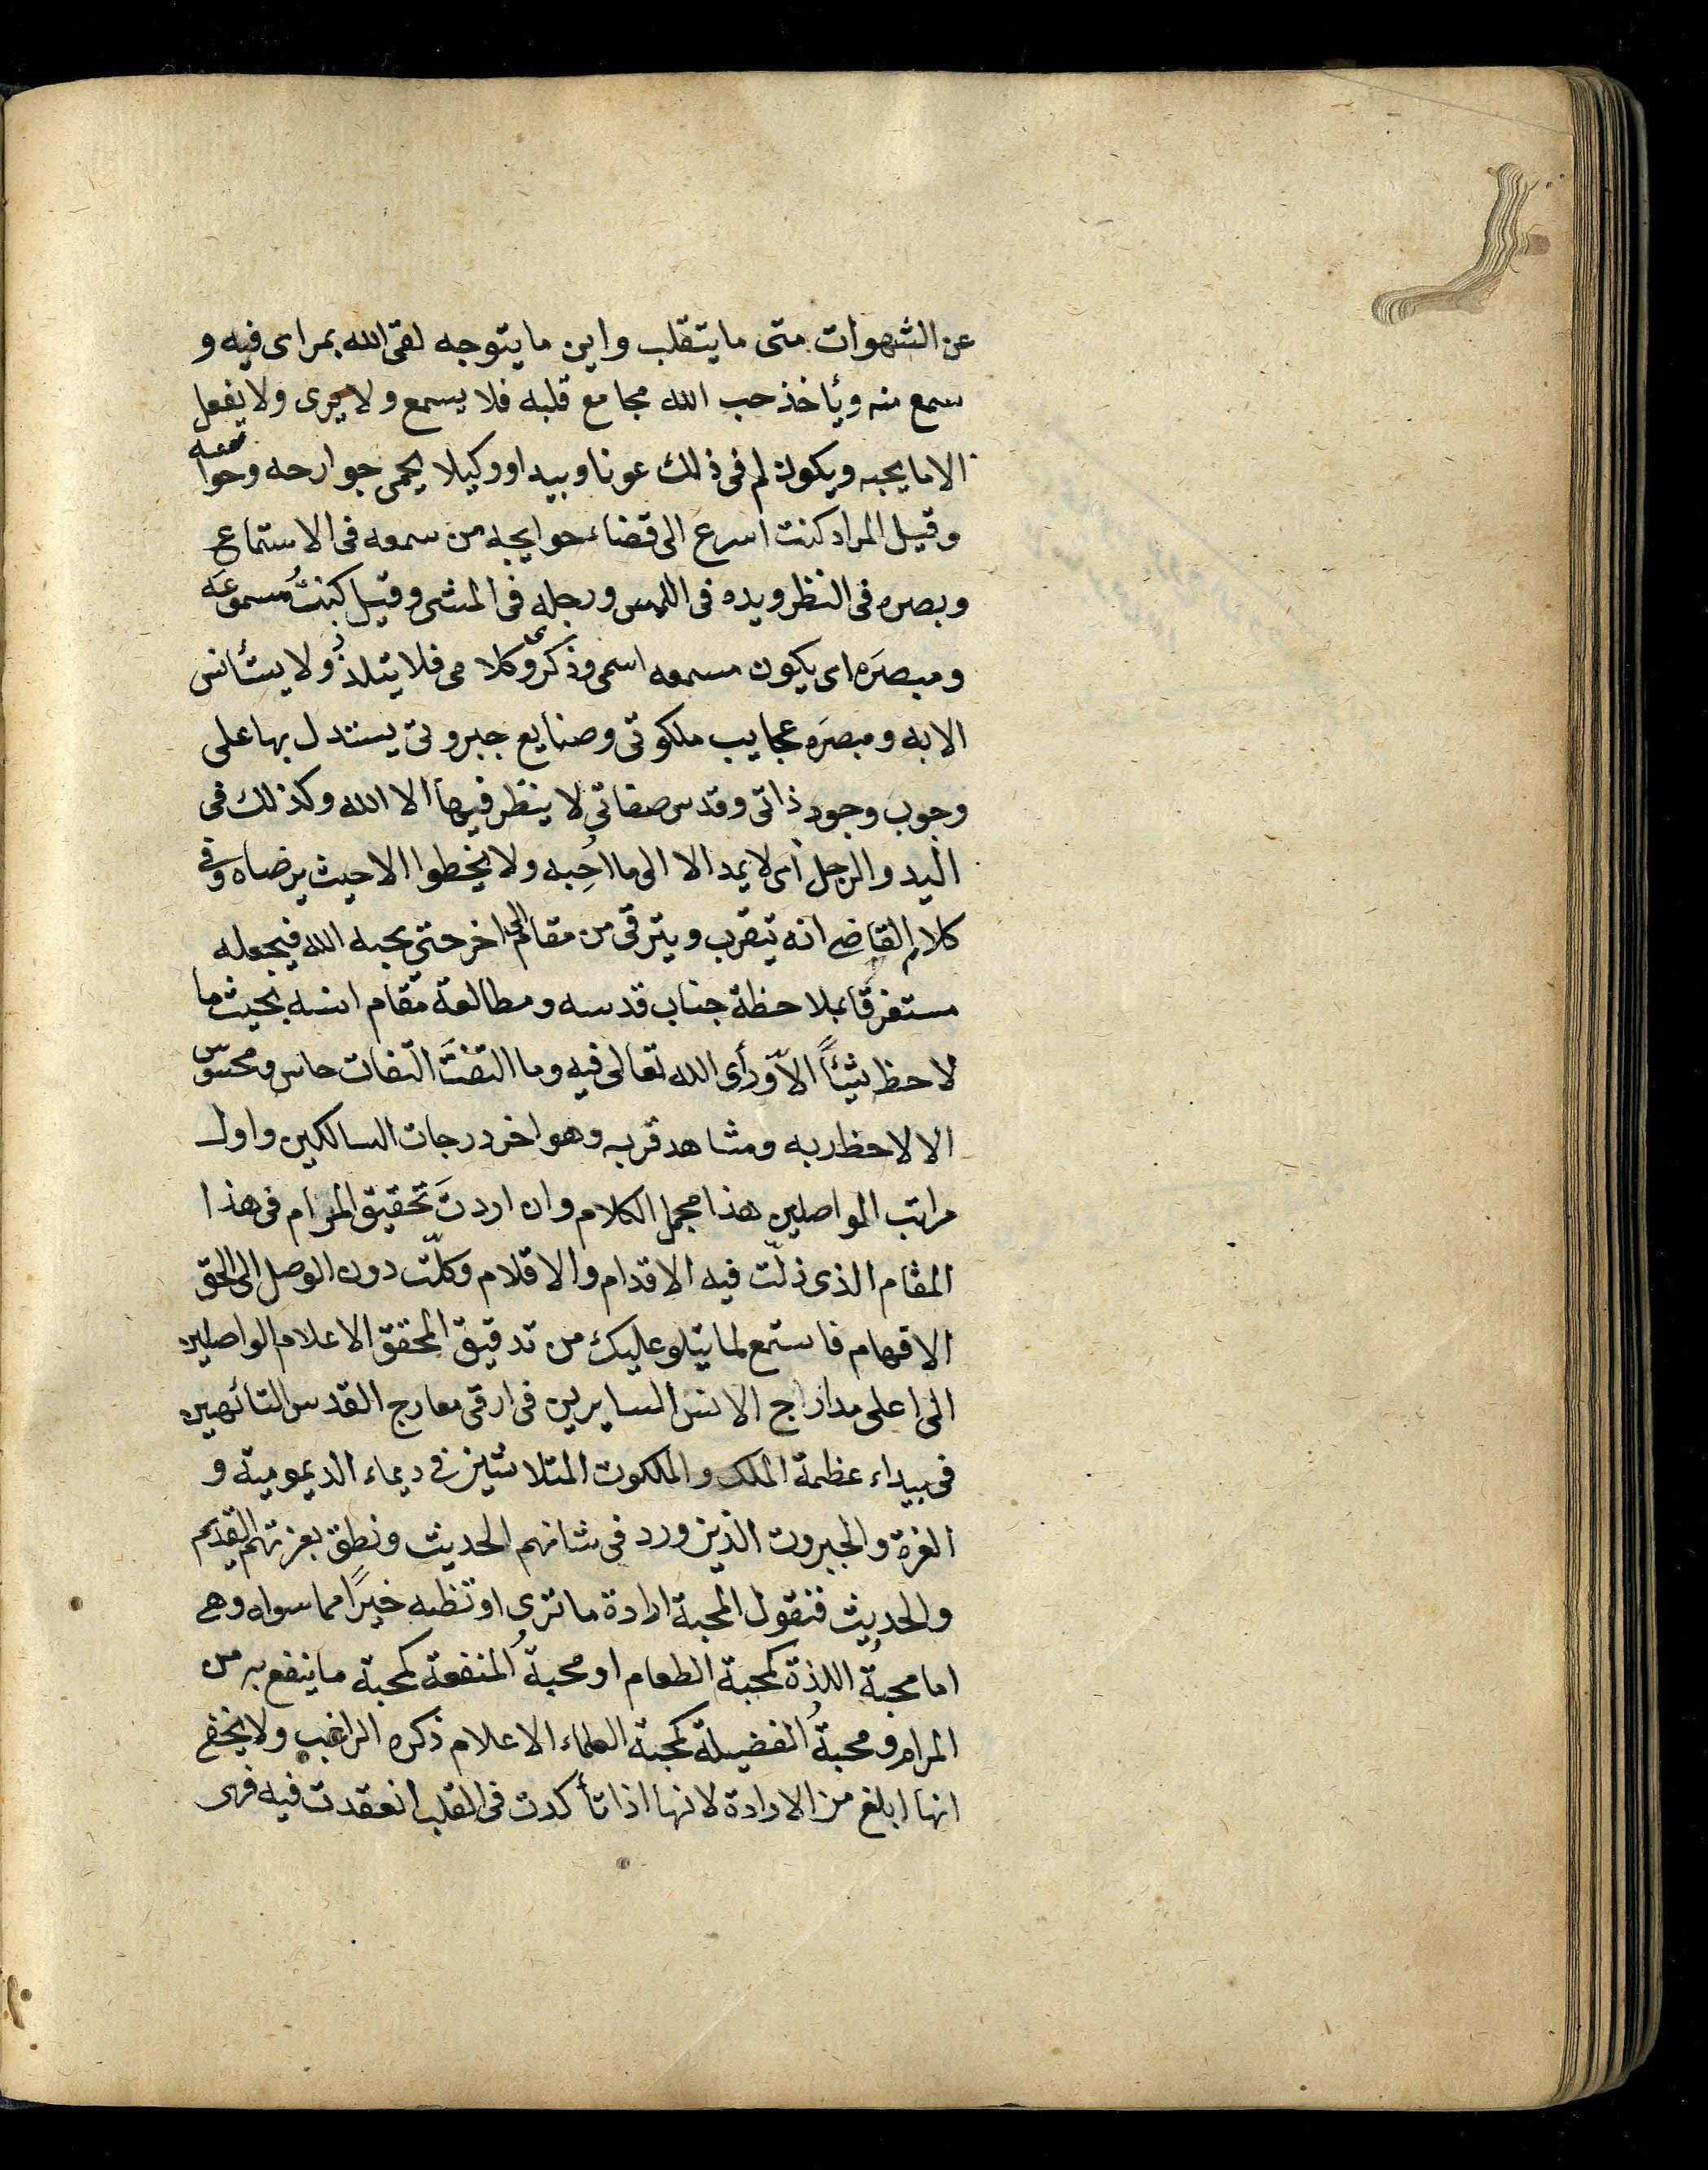 عن الشهوات متى ما يتقلب واين ما يتوجه لقى الله بمراى فيه و
سمع منه ويأخذ حب الله مجامع قلبه فلا يسمع ولا يرى ولا يفعل
الا ما يحبه ويكون له فى ذلك عونا وبيدا ووكيلا يحمى جوارحه وحواسه
وقيل المراد كنت اسرع الى قضاء حوايجه من سمعه فى الاستماع
وبصره فى النظر ويده فى اللمس ورجله فى المشى وقيل كنتُ مسموعَه
ومبصَره اى يكون مسمعه اسمى وذكرى وكلامى فلا يتلذذُ ولا يستأنس
الا به ومبصَره عجايب ملكوتى وصنايع جبروتى يستدل بها على
وجوب وجود ذاتى وقدس صفاتى لا ينظر فيها الا الله وكذلك فى
اليد والرجل اى لا يمد الا الى ما اُحِبه ولا يخطوا الا حيث يرضاه وفى
كلام القاضى انه يتقرب ويترقى من مقام الى اخر حتى يحبه الله فيجعله
مستغرقا بملاحظة جناب قدسه ومطالعة مقام انسه بحيث ما
لاحظ شيئًا الاّ ورأى الله تعالى فيه وما التفتَ التفات حاس ومحسوس
الا لاحظ ربه ومشاهد قربه وهو اخر درجات السالكين واول
مراتب المواصلين هذا مجمل الكلام وان اردتَ تحقيق المرام فى هذا
المقام الذى زلّت فيه الاقدام والاقلام وكلّت دون الوصل الى الحق
الافهام فاستمع لما يتلو عليك من تدقيق المحقق الاعلام الواصلين
الى اعلى مداراج الانس السايرين فى ارقى معارج القدس التائهين
فى بيداء عظمة الملك والملكوت المتلاشين فى ديماء الديمومية و
العزة والجبروت الذين ورد فى شانهم الحديث ونطق بعزتهم القديم
والحديث فنقول المحبة ارادة ما ترى او تظنه خيرًا مما سواه وهى
اما محبةُ اللذة كمحبة الطعام او محبةُ المنفعة كمحبة ما ينفع به من
المرام ومحبةُ الفضيلة كمحبة العلماء الاعلام ذكره الراغب ولا يخفى
انها ابلغ من الارادة لانها اذا تأكدت فى القلب انعقدت فيه فهى